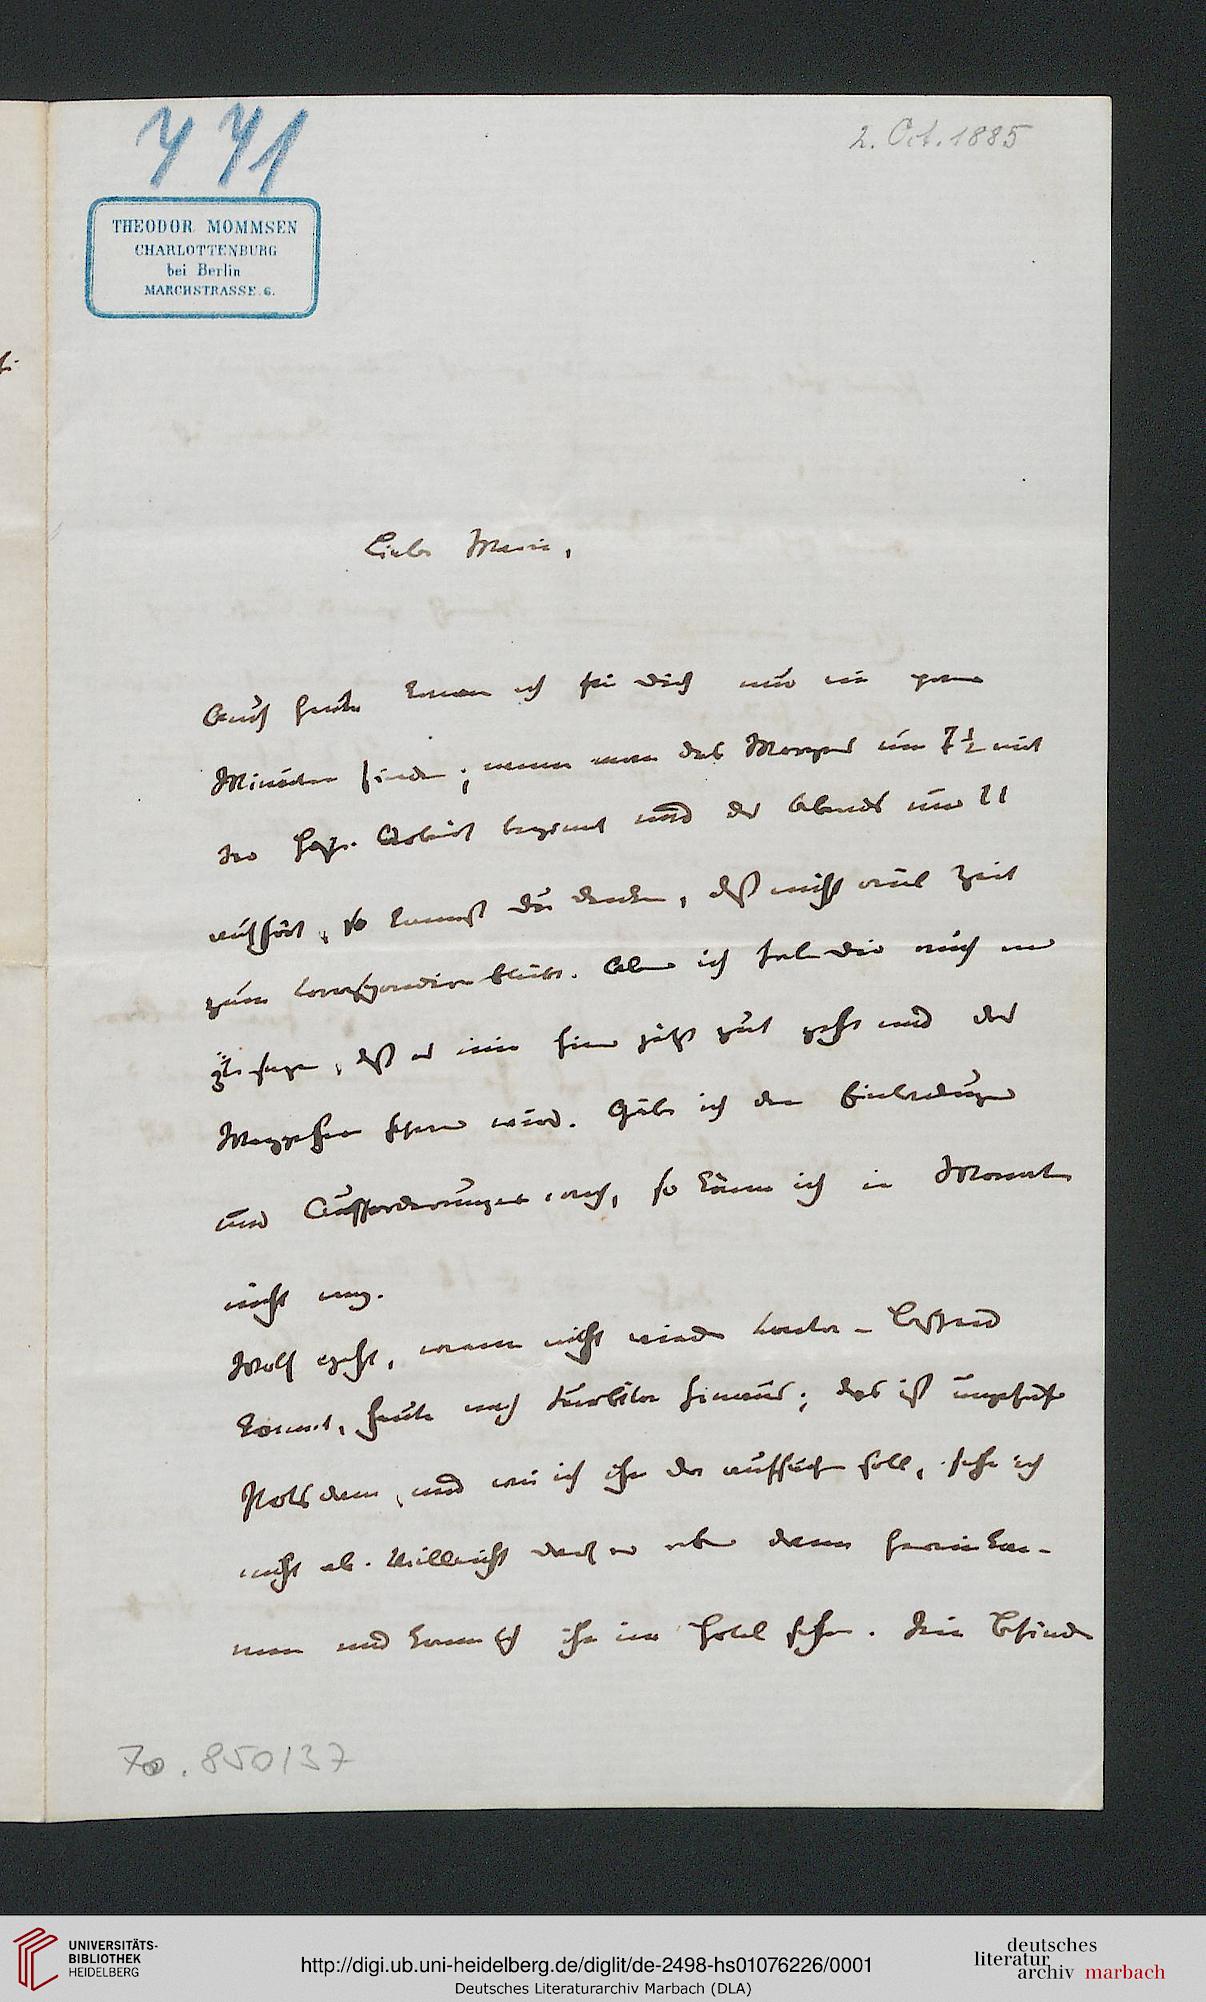 441
2. Oct. 1885
THEODOR MOMMSEN
CHARLOTTENBURG
bei Berlin
MARCHSTRASSE 6.
Liebe Marie,
Auch heute kann ich für dich nur ein paar
Minuten finden; wenn man des Morgens um 7½ mit
der Arbeit beginnt und des Abends um 11
aufhört, so kannst du denken, daß nicht viel Zeit
zum Correspondiren bleibt. Aber ich habe dir auch nur
zu sagen, daß es mir hier jetzt gut geht und das
Weggehen schwer wird. Gäbe ich den Einladungen
und Aufforderungen nach, so käme ich in Monaten
nicht weg.
Wolf geht, wenn nicht wieder
kommt, heute nach hinaus; das ist ungefähr
Potsdam, und wie ich ihn da aufsuchen soll, sehe ich
nicht ab. Vielleicht daß er aber dann herein kom-
men und kann ich ihn im Hotel sehen. Sein Befinden
70.850/37
UNIVERSITÄTS-
BIBLIOTHEK
HEIDELBERG
http://digi.ub.uni-heidelberg.de/diglit/de-2498-hs01076226/0001
Deutsches Literaturarchiv Marbach (DLA)
deutsches
literatur
archiv marbach